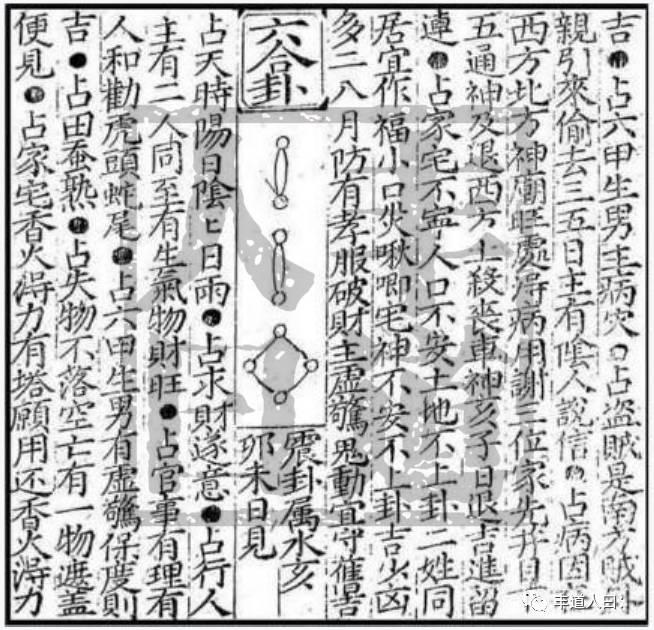 吉●占六甲生男主病灾○占盗賊是南方賊外
親引來偷去三五日主有陰人說信●占病因在
西方北方神廟旺處得病用謝三位家先井皇
五通神及退西方土殺喪車神亥子日退吉進的
連●占家宅不寧人口不安土地不上卦二姓同
居宜作福小口失啾唧宅神不安不上卦吉少凶
多二八月防有孝服破財主虛驚鬼動宜守舊善
六合卦
震卦属水亥
卯未日見
占天時陽日陰匕日雨●占求財遂意●占行人
主有二人同至有生氣物財旺●占官事有理有
人和勸虎頭蛇尾●占六甲生男有虛驚保度則
吉●占田蚕熟●占失物不落空亡有一物遮盖
便見●占家宅香火淂力有塔願用还香火淂力
羊道人曰